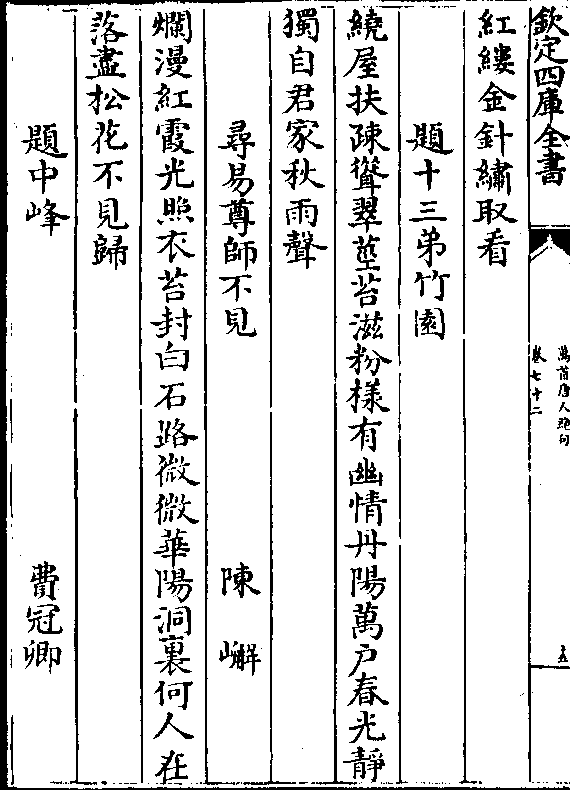 欽定四庫全書
萬首唐人絶句
卷七十二
紅縷金針繡取看
題十三弟竹園
繞屋扶疎聳翠莖苔滋粉様有幽情丹陽萬户春光靜
獨自君家秋雨聲
尋易尊師不見 陳嶰
爛漫紅霞光照衣苔封白石路微微華陽洞裏何人在
落盡松花不見歸
題中峰 費冠卿